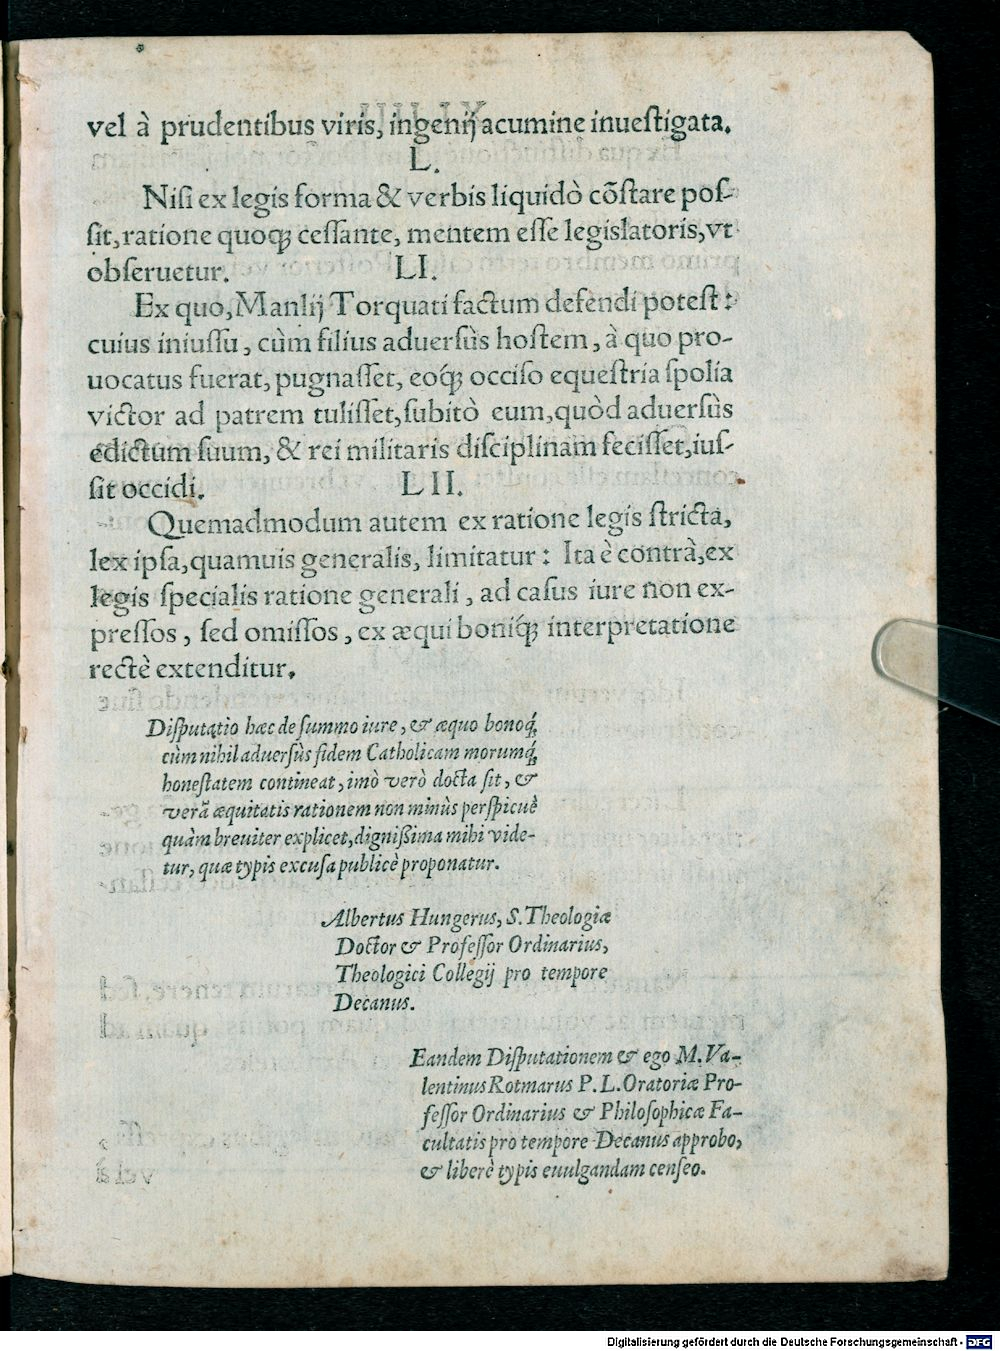 vel à prudentibus viris, ingenij acumine inueſtigata.
L.
Niſi ex legis forma & verbis liquidò cõſtare poſ-
ſit, ratione quoq́; ceſſante, mentem eſſe legiſlatoris, vt
obſeruetur.
LI.
Ex quo, Manlij Torquati factum defendi poteſt:
cuius iniuſſu, cùm filius aduerſùs hoſtem, à quo pro-
uocatus fuerat, pugnaſſet, eoq́; occiſo equeſtria ſpolia
victor ad patrem tuliſſet, ſubitò eum, quòd aduerſùs
edictum ſuum, & rei militaris diſciplinam feciſſet, iuſ-
ſit occidi.
LII.
Quemadmodum autem ex ratione legis ſtricta,
lex ipſa, quamuis generalis, limitatur: Ita è contrà, ex
legis ſpecialis ratione generali, ad caſus iure non ex-
preſſos, ſed omiſſos, ex æqui boniq́; interpretatione
rectè extenditur.
Diſputatio hæc de ſummo iure, & æquo bonoq́;
cùm nihil aduerſùs fidem Catholicam morumq́;
honeſtatem contineat, imò verò docta ſit, &
verã æquitatis rationem non minùs perſpicuè
quàm breuiter explicet, digniſſima mihi vide-
tur, quæ typis excuſa publicè proponatur.
Albertus Hungerus, S. Theologiæ
Doctor & Profeſſor Ordinarius,
Theologici Collegij pro tempore
Decanus.
Eandem Diſputationem & ego M. Va-
lentinus Rotmarus P. L. Oratoriæ Pro-
feſſor Ordinarius & Philoſophicæ Fa-
cultatis pro tempore Decanus approbo,
& liberè typis euulgandam cenſeo.
Digitalisierung gefördert durch die Deutsche Forschungsgemeinschaft - DFG